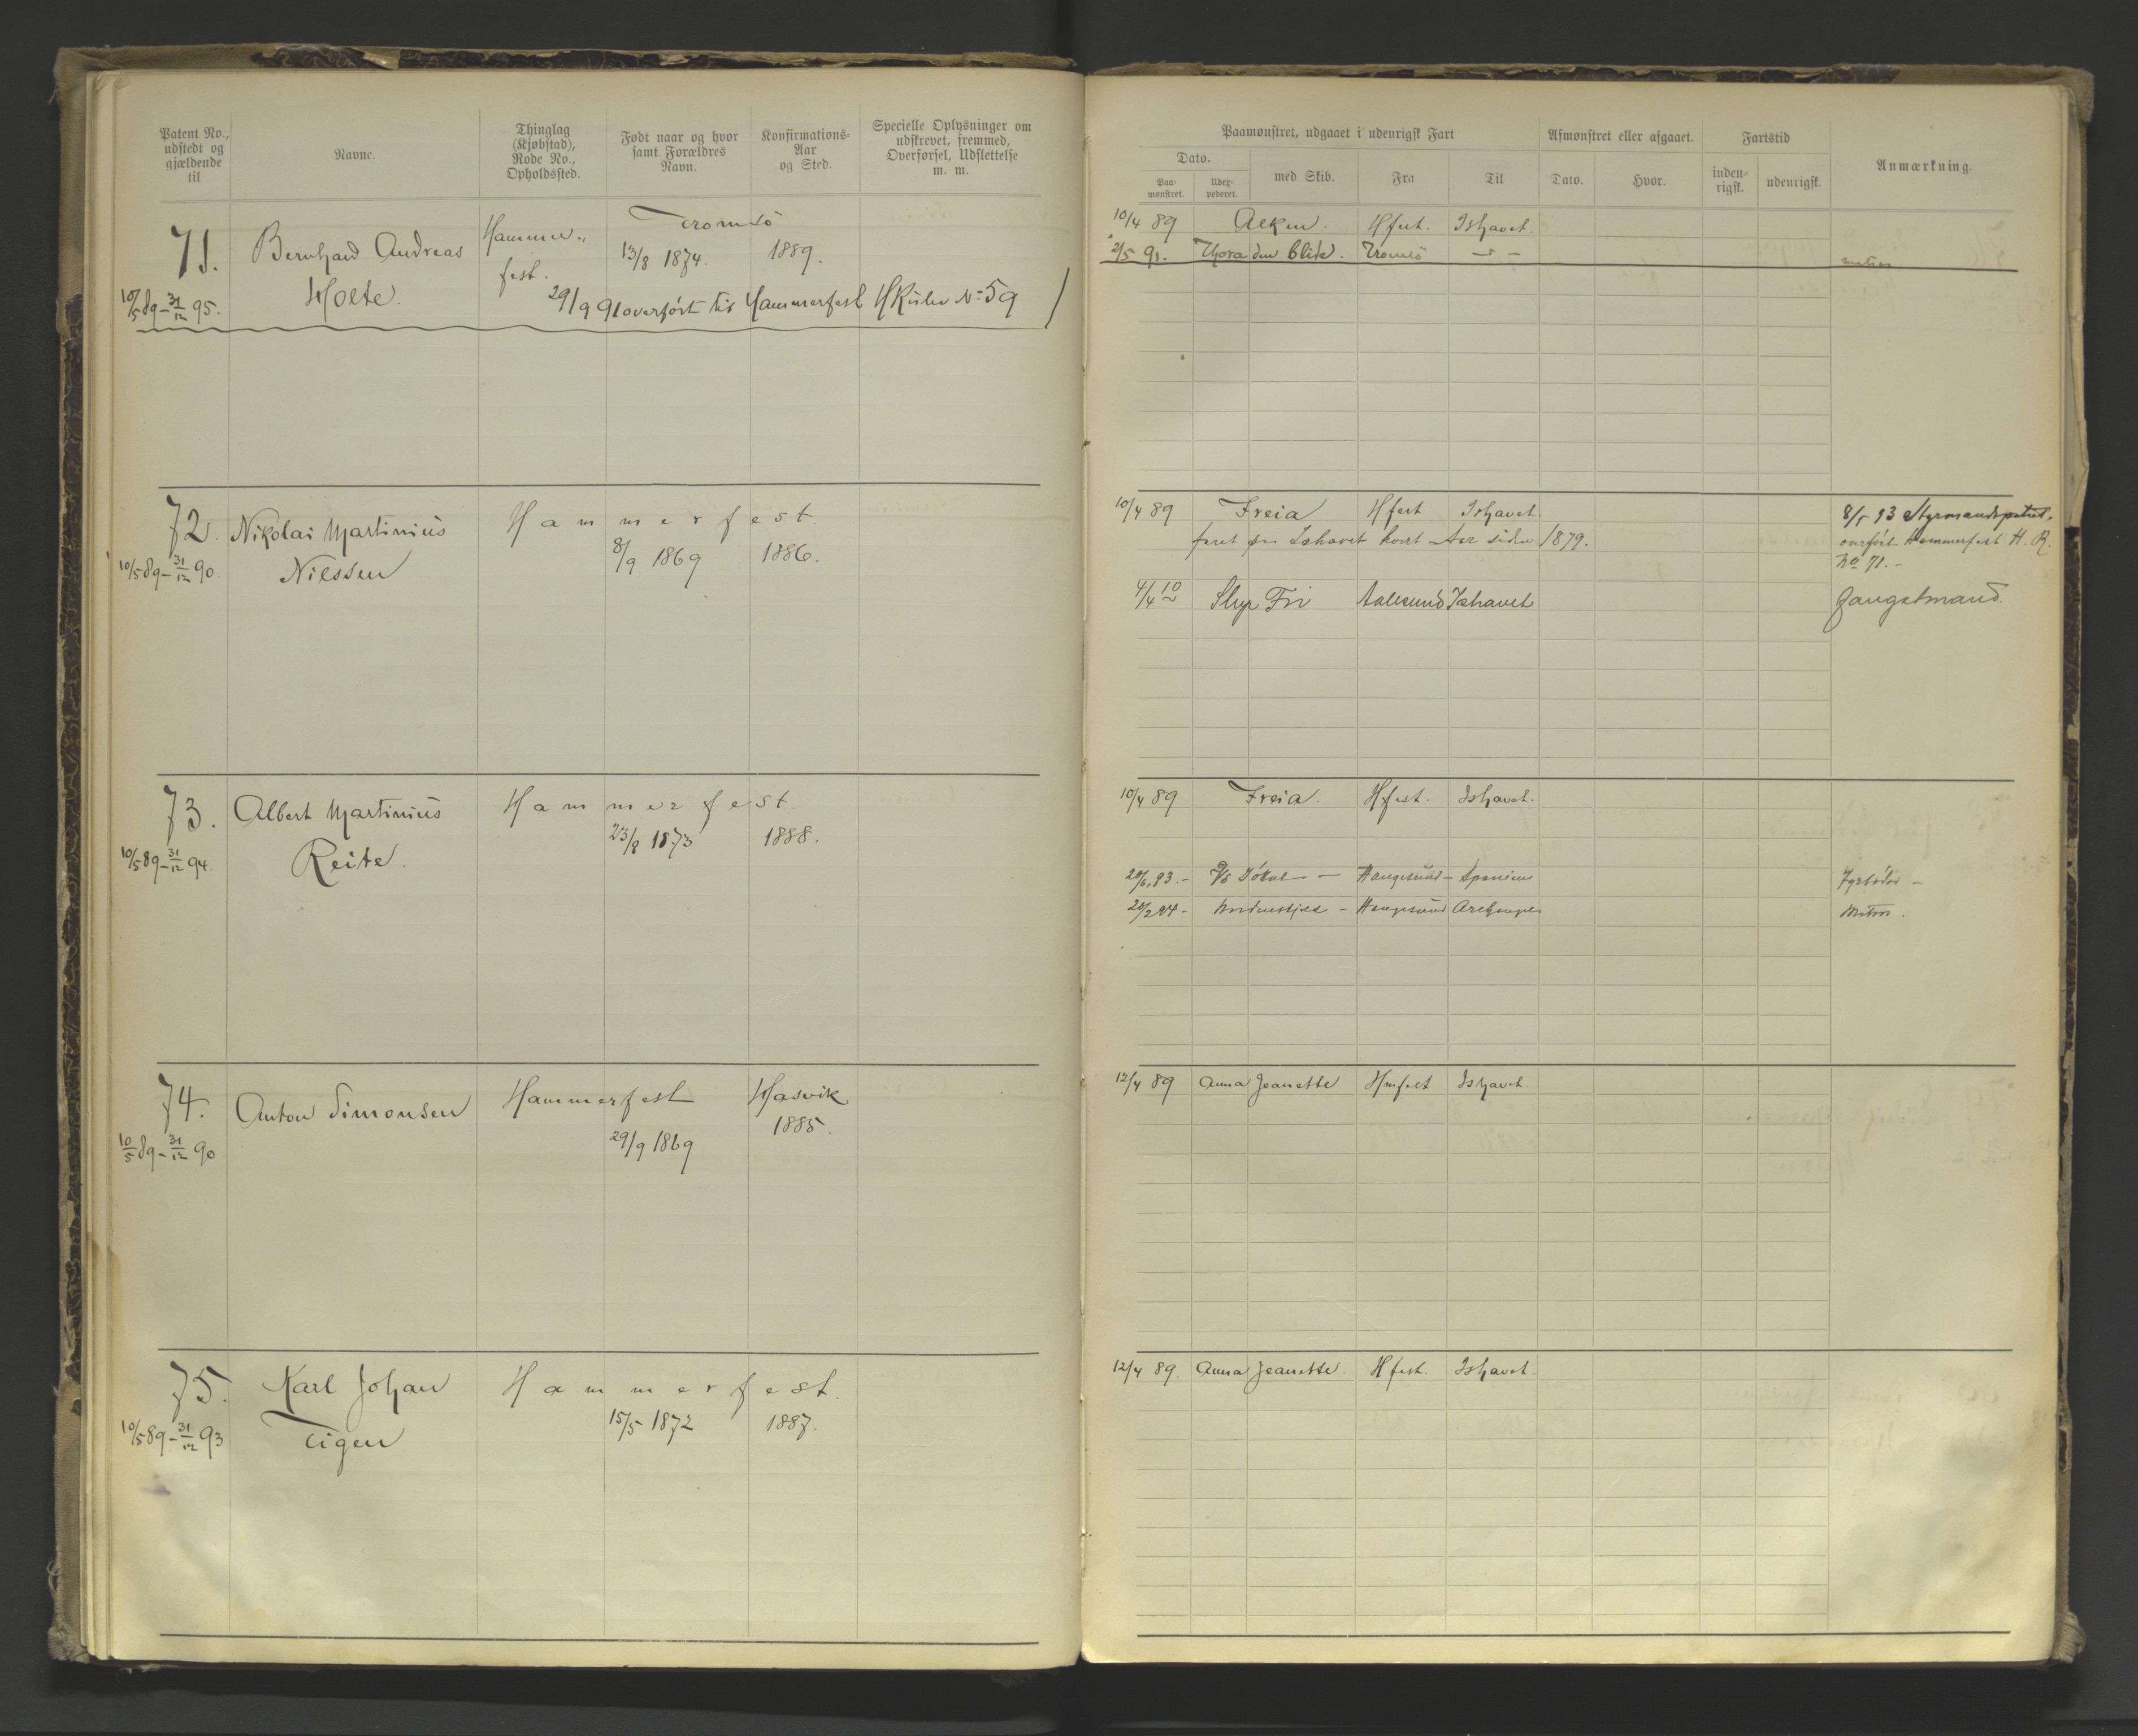 Patent No., udstedt og gjældende til
Navne.
Thinglag (Kjøbstad), Rode No., Opholdssted.
Født naar og hvor samt Forældres Navn.
Konfirmations-Aar og Sted.
Specielle Oplysninger om udskrevet, fremmed, Overførsel, Udslettelse m. m.
71.
10/5 89 – 31/12 95.
Bernhard Andreas
Holte.
Hammer„
fest.
Tromsö
13/8 1874.
1889.
29/9 91 overført til Hammerfest HRulle No 59
72.
10/5 89 – 31/12 90.
Nikolai Martinius
Nilssen
Hammerfest
8/9 1869
1886.
73.
10/5 89 – 31/12 94.
Albert Martinius
Reite.
Hammerfest.
23/8 1873
1888.
74.
10/5 89 – 31/12 90
Anton Simonsen
Hammerfest
29/9 1869
Hasvik
1885.
75.
10/5 89 – 31/12 93
Karl Johan
Tigen
Hammerfest.
15/5 1872
1887.
Paamønstret, udgaaet i udenrigsk Fart
Afmønstret eller afgaaet.
Fartstid
Anmærkning.
Dato.
Paa-mønstret.
Uder-pederet.
med Skib.
Fra
Til
Dato.
Hvor.
inden-rigsk.
udenrigsk.
10/4 89 Hfest. Ishavet.
2/5 91. Thora den blide. Tromsö – " –
10/4 89 Freia Hfest Ishavet.
8/5 93 Styrmandspatent,
faret paa Ishavet hvert Aar siden 1879.
overført Hammerfest H. R.
No 71.–
4/4 10 Fri Aalesund Ishavet
Fangstmand.
10/4 89 Freia. Hfest. Ishavet.
Haugesund – Spanien
Fyrbøder –
Haugesund Archangel
Matros.
12/4 89 Anna Jeanette Hmfest Ishavet.
12/4 89. Anna Jeanette. Hfest. Ishavet.